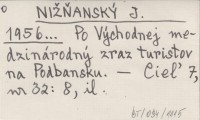 NIŽŇANSKÝ J.
1956... Po Východnej me-
dzinárodný zraz turistov
na Podbansku. — Cieľ 7,
nr 32: 8, il.
BT/094/1115